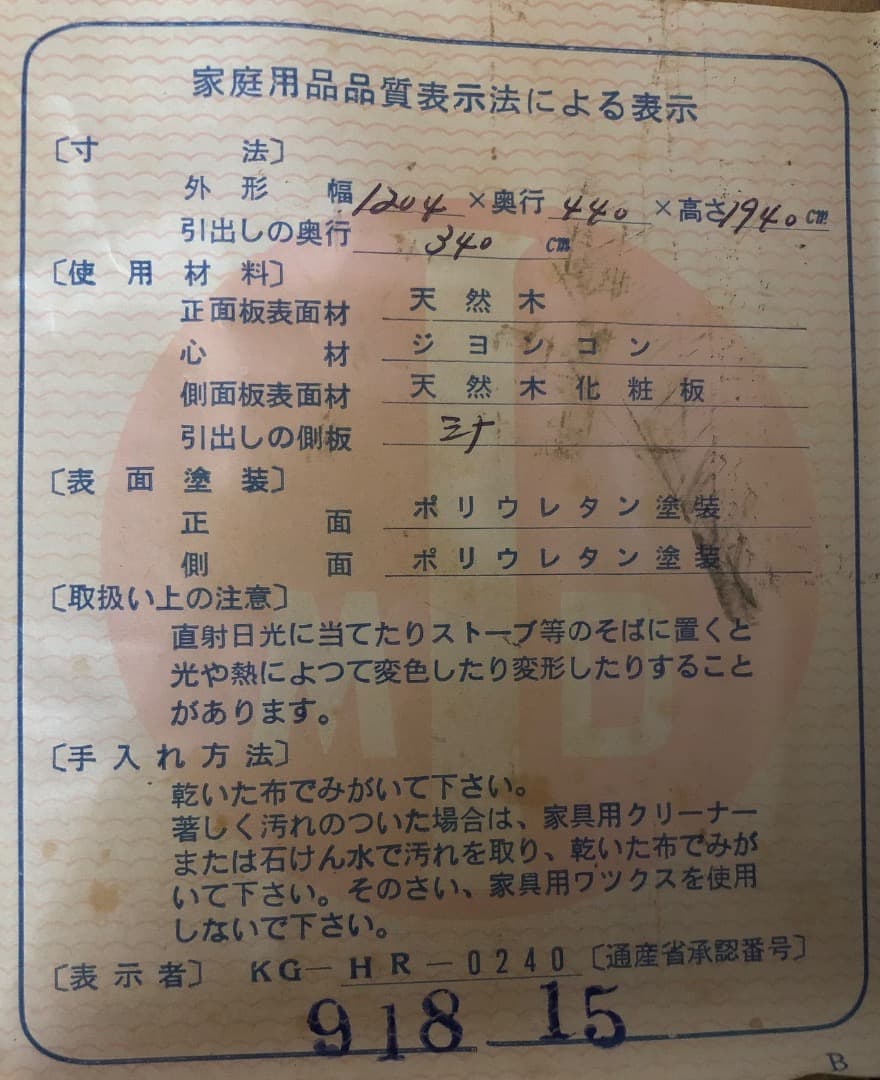 家庭用品品質表示法による表示
〔寸法〕
外形 幅1204×奥行440×高さ1940cm
引出しの奥行 340 cm
〔使用材料〕
正面板表面材 天然木
心材 ジヨンコン
側面板表面材 天然木化粧板
引出しの側板 ミナ
〔表面塗装〕
正面 ポリウレタン塗装
側面 ポリウレタン塗装
〔取扱い上の注意〕
直射日光に当てたりストーブ等のそばに置くと
光や熱によつて変色したり変形したりすること
があります。
〔手入れ方法〕
乾いた布でみがいて下さい。
著しく汚れのついた場合は、家具用クリーナー
または石けん水で汚れを取り、乾いた布でみが
いて下さい。そのさい、家具用ワツクスを使用
しないで下さい。
〔表示者〕 KG-HR-0240〔通産省承認番号〕
918 15
B